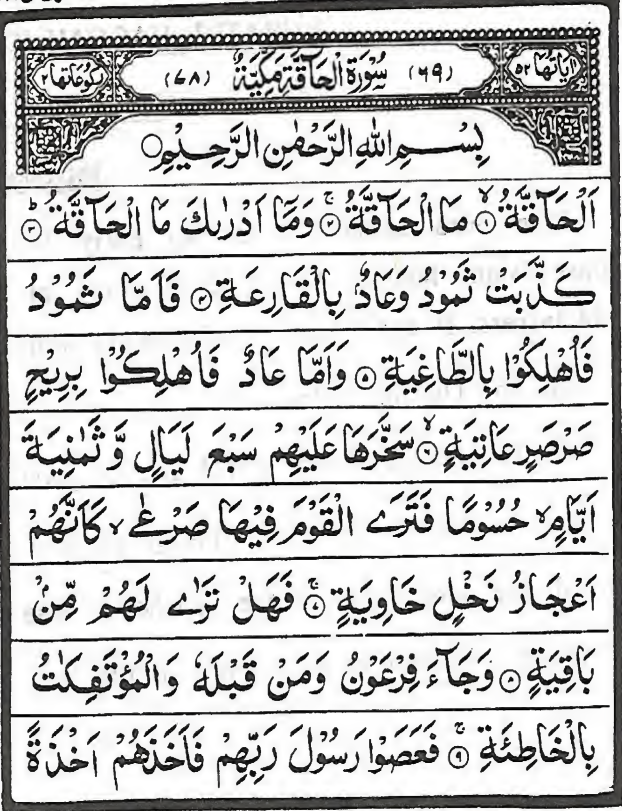 اٰيَاتُهَا ٥٢ (٦٩) سُوْرَةُ الْحَآقَّةِ مَكِّيَّةٌ (٧٨) رُكُوْعَاتُهَا ٢
بِسْمِ اللّٰهِ الرَّحْمٰنِ الرَّحِيْمِ ○
اَلْحَآقَّةُ ۙ۝١ مَا الْحَآقَّةُ ۚ۝٢ وَمَآ اَدْرٰىكَ مَا الْحَآقَّةُ ؕ۝٣
كَذَّبَتْ ثَمُوْدُ وَعَادٌۢ بِالْقَارِعَةِ ۝٤ فَاَمَّا ثَمُوْدُ
فَاُهْلِكُوْا بِالطَّاغِيَةِ ۝٥ وَاَمَّا عَادٌ فَاُهْلِكُوْا بِرِيْحٍ
صَرْصَرٍ عَاتِيَةٍ ۙ۝٦ سَخَّرَهَا عَلَيْهِمْ سَبْعَ لَيَالٍ وَّ ثَمٰنِيَةَ
اَيَّامٍ ۙ حُسُوْمًا فَتَرَى الْقَوْمَ فِيْهَا صَرْعٰى ۙ كَاَنَّهُمْ
اَعْجَازُ نَخْلٍ خَاوِيَةٍ ۚ۝٧ فَهَلْ تَرٰى لَهُمْ مِّنْۢ
بَاقِيَةٍ ۝٨ وَجَآءَ فِرْعَوْنُ وَمَنْ قَبْلَهٗ وَالْمُؤْتَفِكٰتُ
بِالْخَاطِئَةِ ۚ۝٩ فَعَصَوْا رَسُوْلَ رَبِّهِمْ فَاَخَذَهُمْ اَخْذَةً